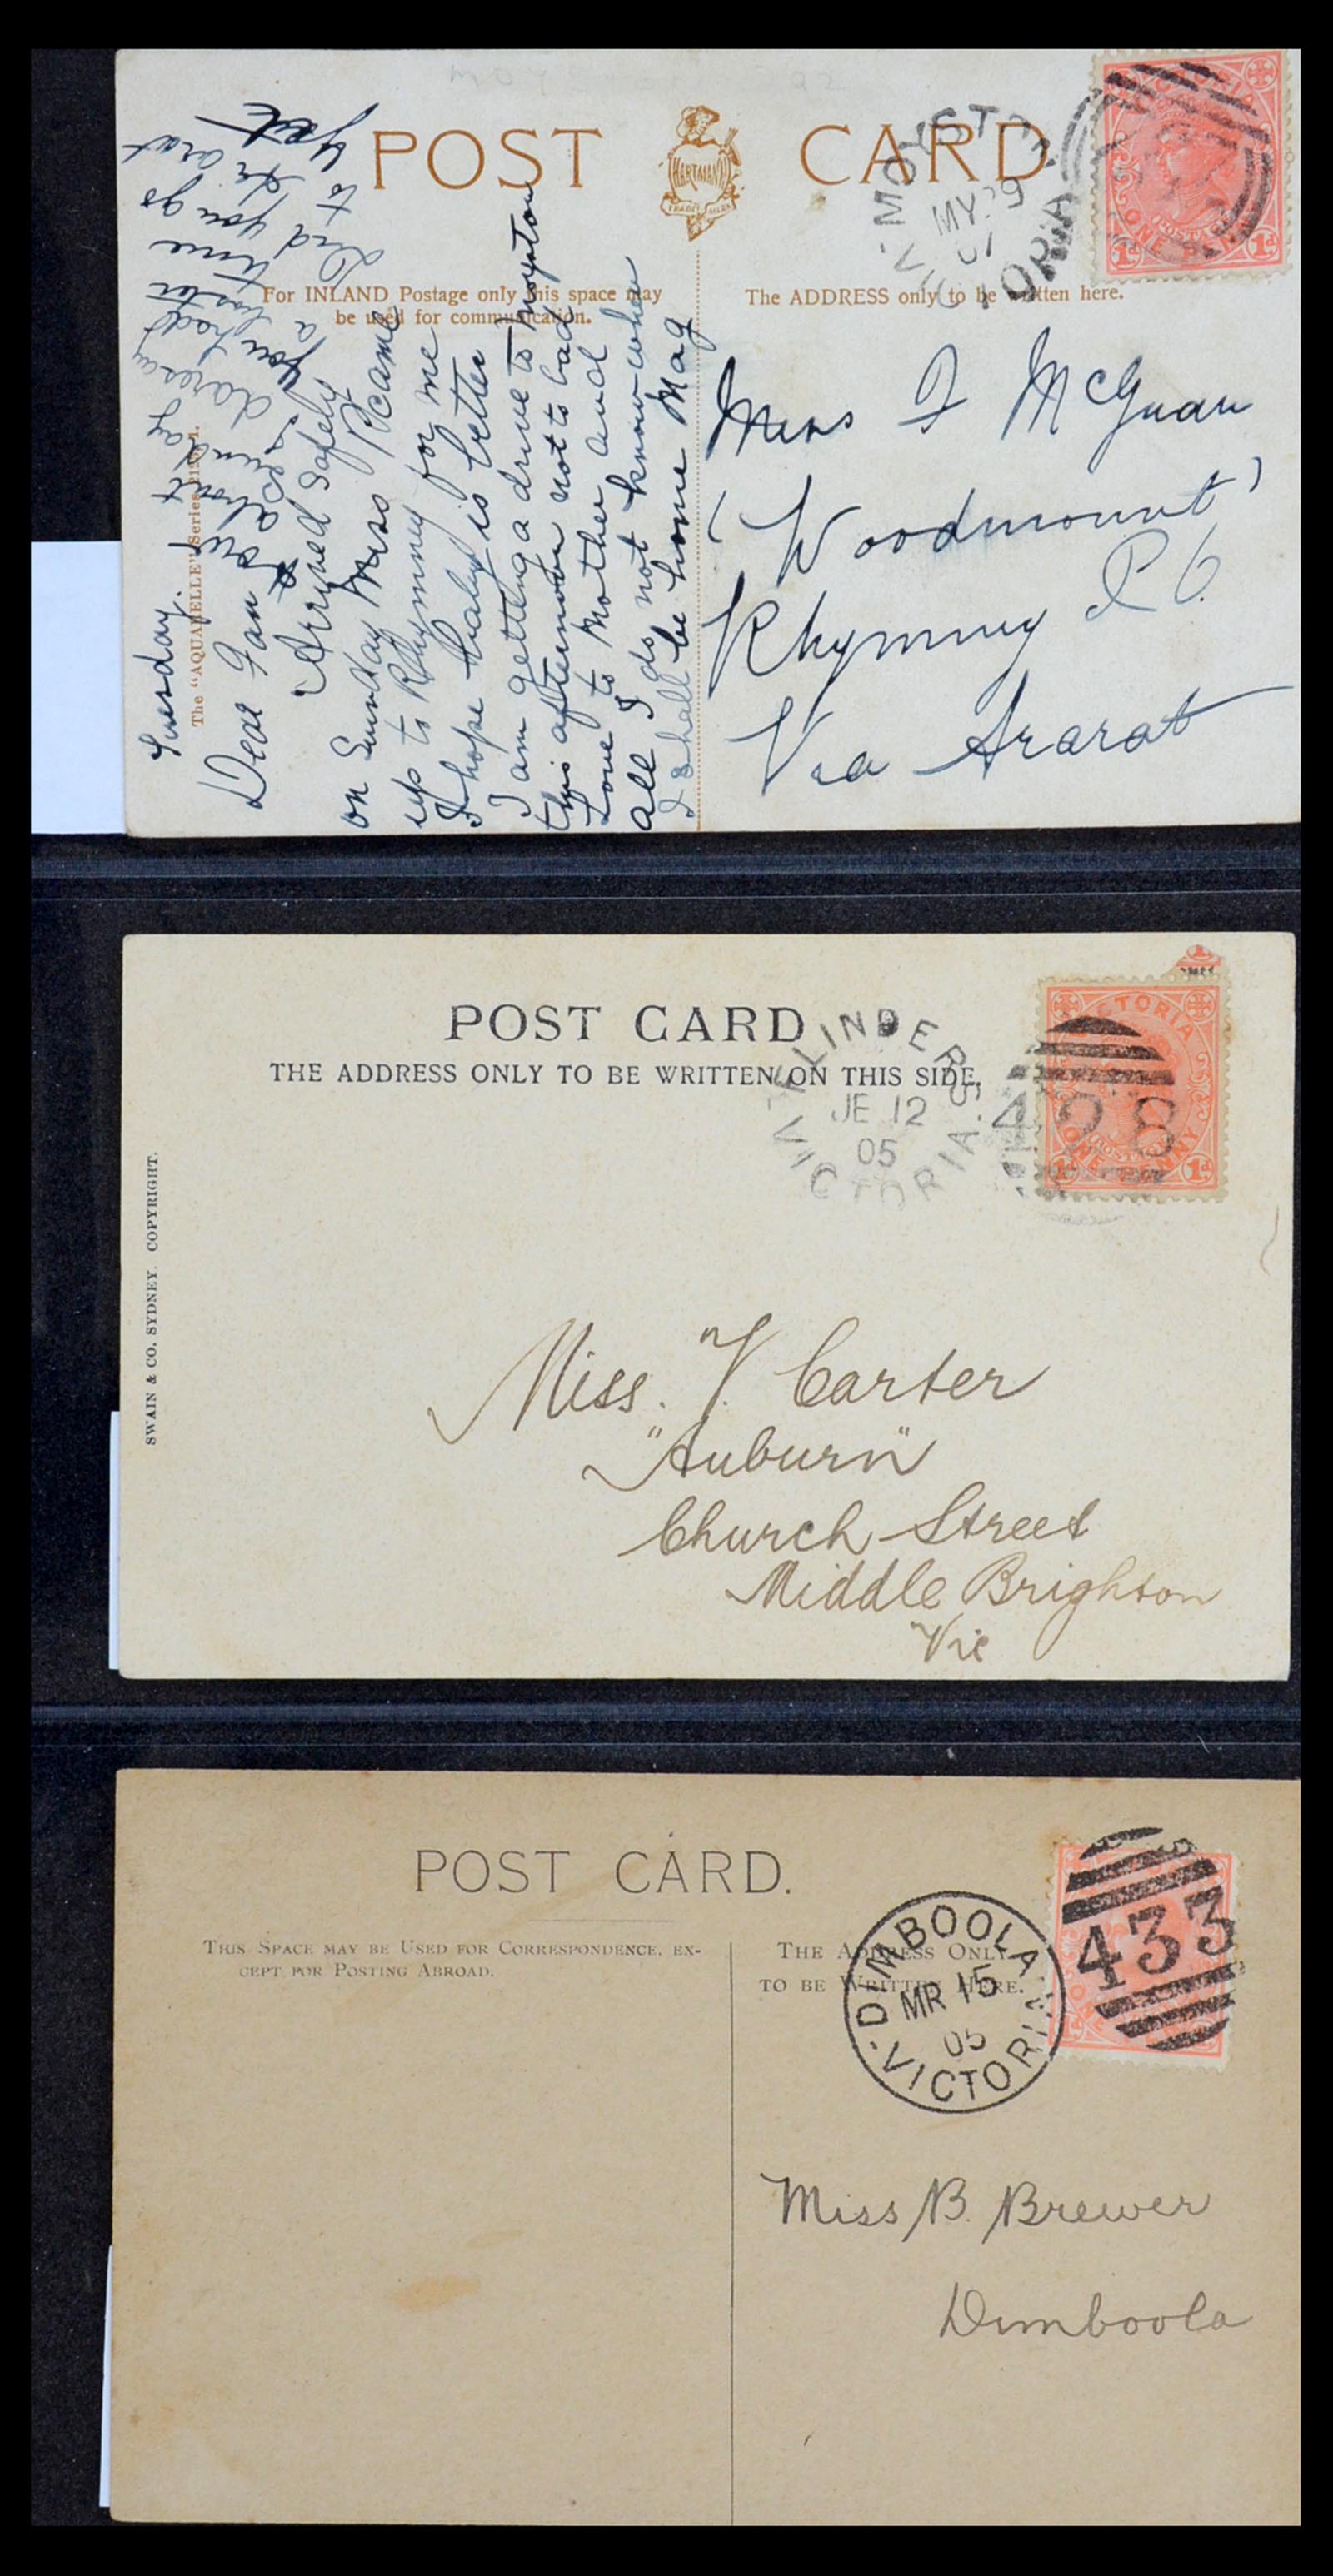 POST CARD
HARTMANN
TRADE MARK
MOYSTON
MY 29
07
VICTORIA
ONE PENNY
POSTAGE
1d 1d
For INLAND Postage only this space may
be used for communication.
The ADDRESS only to be written here.
The "AQUARELLE" Series
Tuesday.
Dear Fan
Arrived Safely
on Sunday Miss R came
up to Rhymney for me
I hope baby is better
I am getting a drive to Moyston
this afternoon not to bad
Love to Mother and
all I do not know when
I shall be home Mag
you had
a
time
And you go
to Ararat
yet
Miss F McGuan
'Woodmount'
Rhymney P.O.
Via Ararat
POST CARD
THE ADDRESS ONLY TO BE WRITTEN ON THIS SIDE.
SWAIN & CO. SYDNEY. COPYRIGHT.
FLINDERS
JE 12
05
VICTORIA
428
VICTORIA
POSTAGE
ONE PENNY
1d 1d
Miss. V. Carter
"Auburn"
Church Street
Middle Brighton
Vic
POST CARD.
THIS SPACE MAY BE USED FOR CORRESPONDENCE, EX-
CEPT FOR POSTING ABROAD.
THE ADDRESS ONLY
TO BE WRITTEN HERE.
DIMBOOLA
MR 15
05
VICTORIA
433
Miss B. Brewer
Dimboola